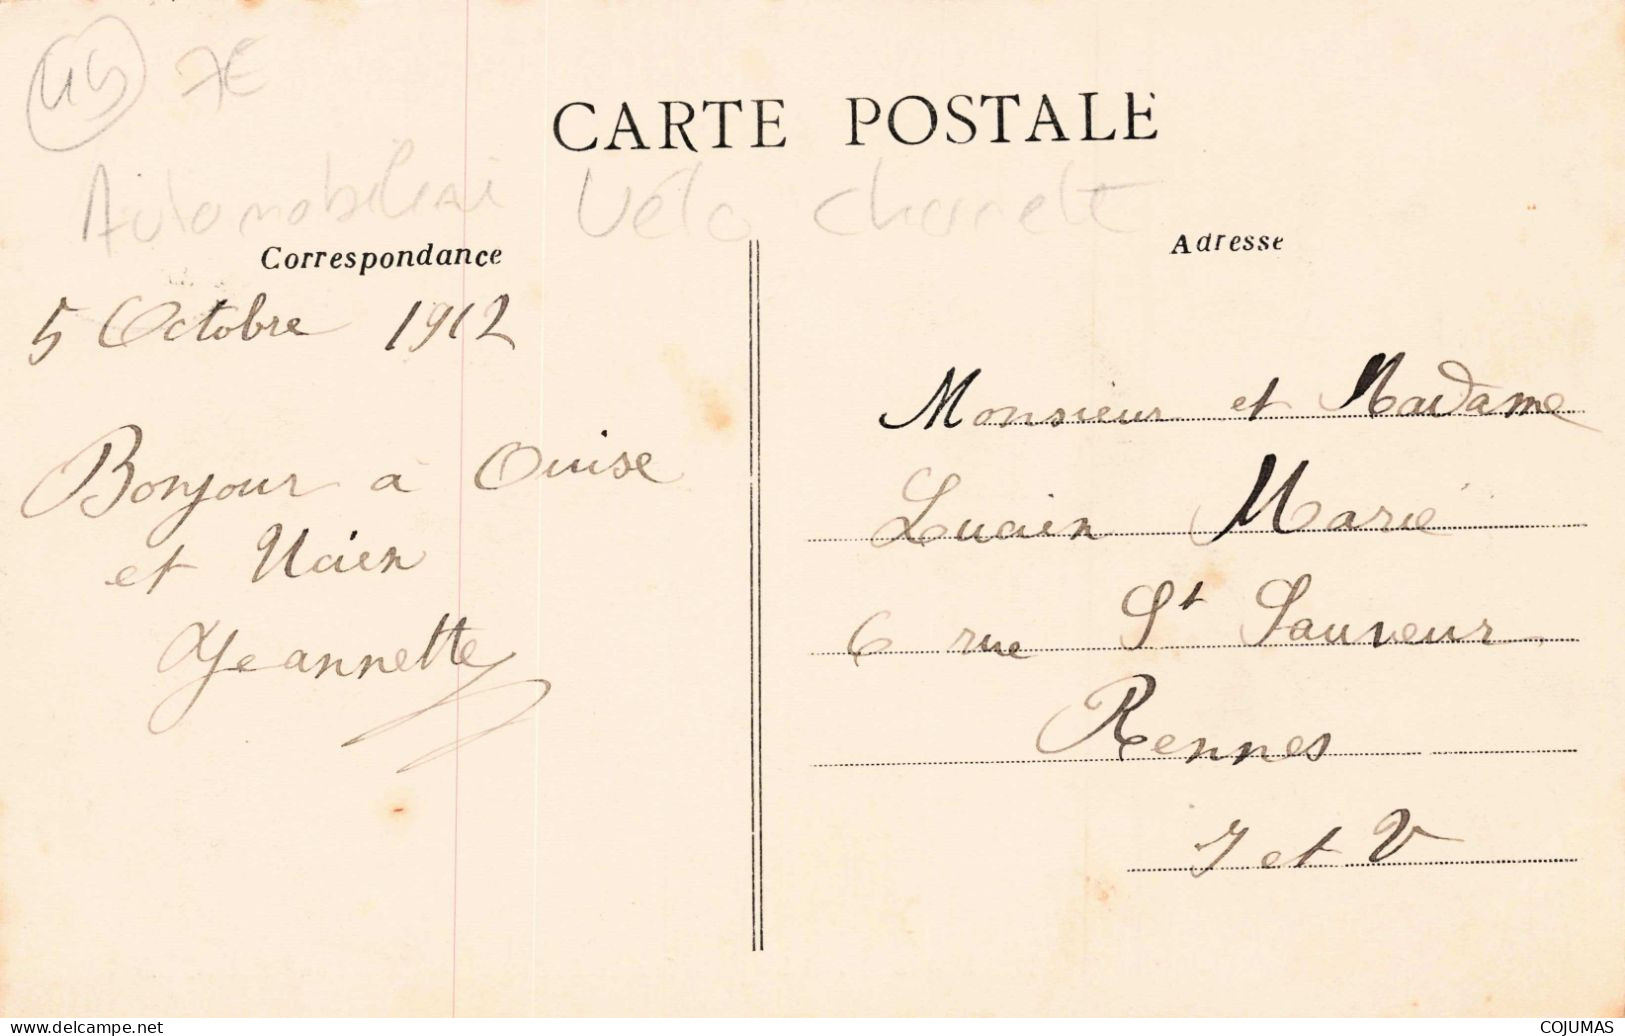 45 7€
CARTE POSTALE
Vélo
Correspondance
5 Octobre 1912
Bonjour à Ouise
et Ucien
Jeannette
Adresse
Monsieur et Madame
Lucien Marie
6 rue St Sauveur
Rennes
I et V
www.delcampe.net
COJUMAS